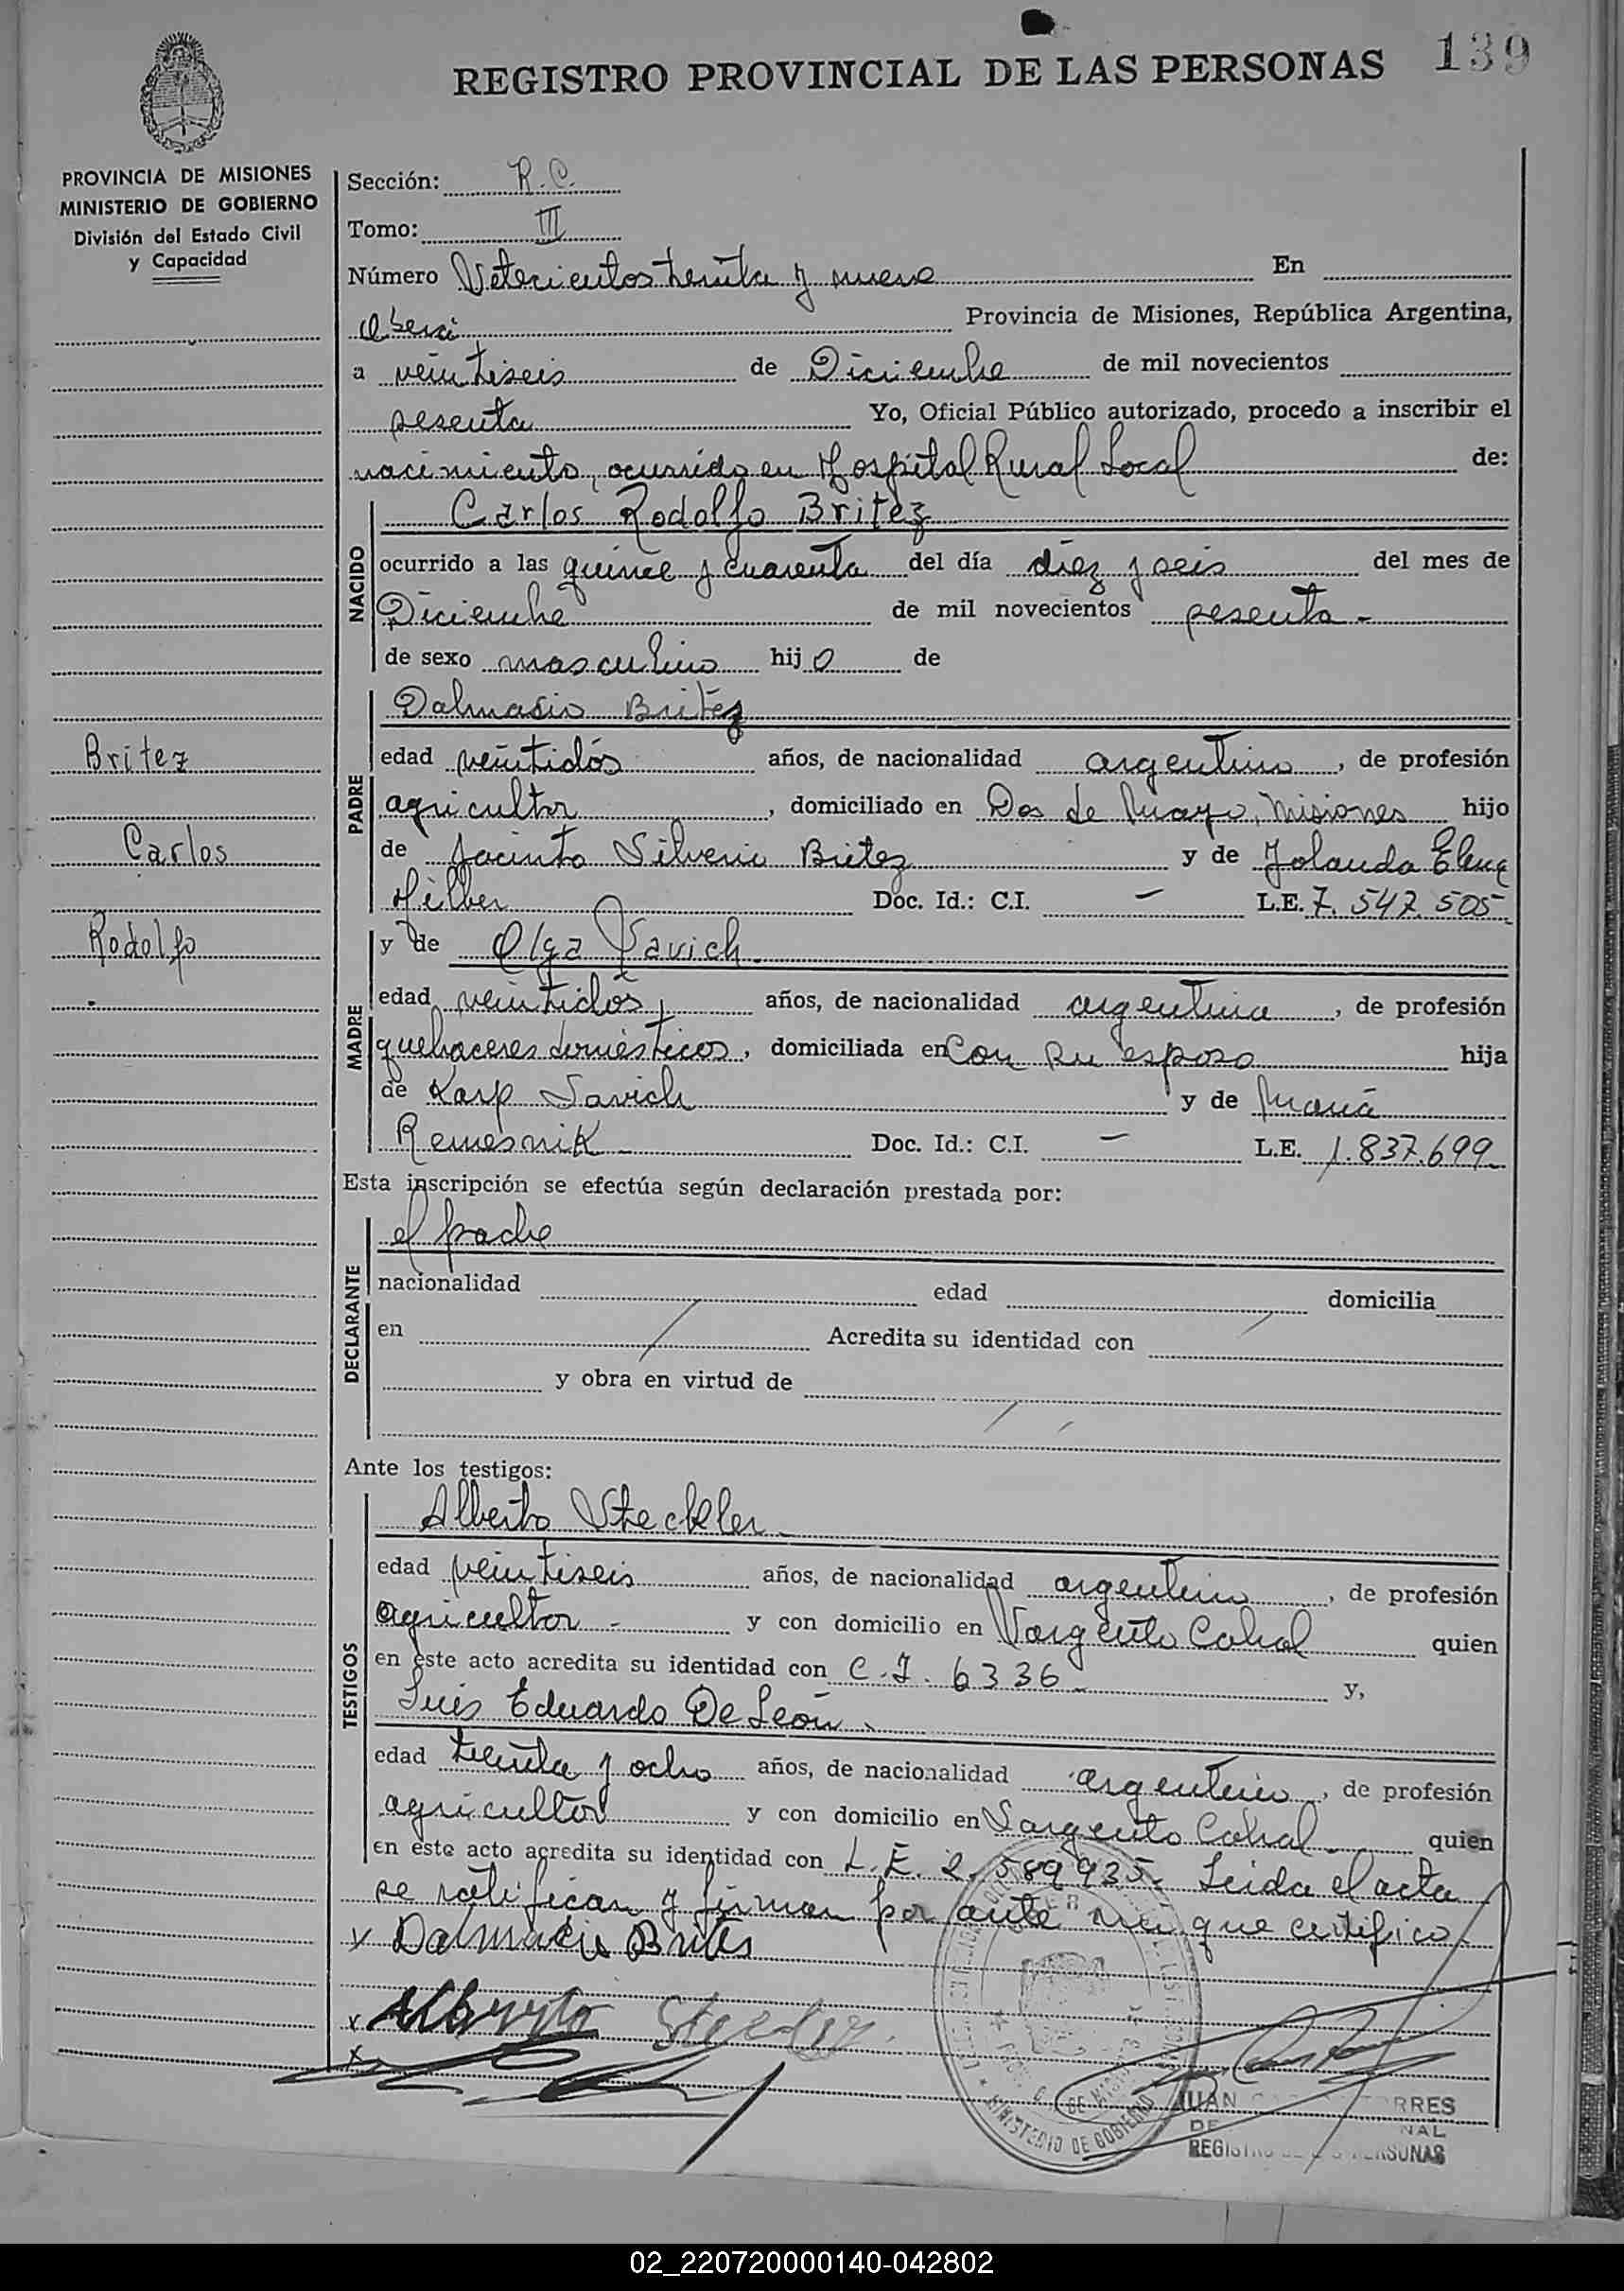 139
REGISTRO PROVINCIAL DE LAS PERSONAS
PROVINCIA DE MISIONES
MINISTERIO DE GOBIERNO
División del Estado Civil
y Capacidad
Sección: R.C.
Tomo: III
Número Setecientos treinta y nueve En
Oberá Provincia de Misiones, República Argentina,
a veintiseis de Diciembre de mil novecientos
sesenta Yo, Oficial Público autorizado, procedo a inscribir el
nacimiento, ocurrido en Hospital Rural Local de:
NACIDO
Carlos Rodolfo Britez
ocurrido a las quince y cuarenta del día diez y seis del mes de
Diciembre de mil novecientos sesenta -
de sexo masculino hijo de
PADRE
Dalmacio Britez
Britez
edad veintidós años, de nacionalidad argentino, de profesión
agricultor, domiciliado en Dos de Mayo, Misiones hijo
Carlos
de Jacinto Silverio Britez y de Yolanda Elena
Hilber Doc. Id.: C.I. - L.E. 7.547.505
Rodolfo
MADRE
y de Olga Savich.
edad veintidós, años, de nacionalidad argentina, de profesión
quehaceres domésticos, domiciliada en Con su esposo hija
de Karp Savich y de María
Remesnik - Doc. Id.: C.I. - L.E. 1.837.699
Esta inscripción se efectúa según declaración prestada por:
DECLARANTE
el padre
nacionalidad edad domicilia
en Acredita su identidad con
y obra en virtud de
Ante los testigos:
TESTIGOS
Alberto Steckler -
edad veintiseis años, de nacionalidad argentino, de profesión
agricultor - y con domicilio en Sargento Cabral quien
en este acto acredita su identidad con C.I. 6336 - y,
Luis Eduardo De León.
edad treinta y ocho años, de nacionalidad argentino, de profesión
agricultor y con domicilio en Sargento Cabral - quien
en este acto acredita su identidad con L.E. 2.589.935- Leida el acta
se ratifican y firman por ante mi que certifico.
x Dalmacio Brites
x Alberto Steckler
x
MINISTERIO DE GOBIERNO
JUAN
REGISTRO DE LAS PERSONAS
02_220720000140-042802